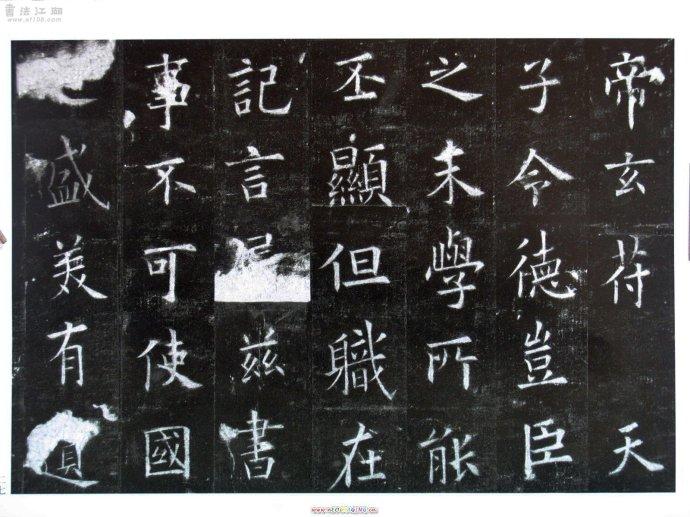 書法江湖
www.sf108.com
帝玄苻 天
子令德豈臣
之末學所能
丕顯但職在
記言 茲書
事不可使國
盛美有遺